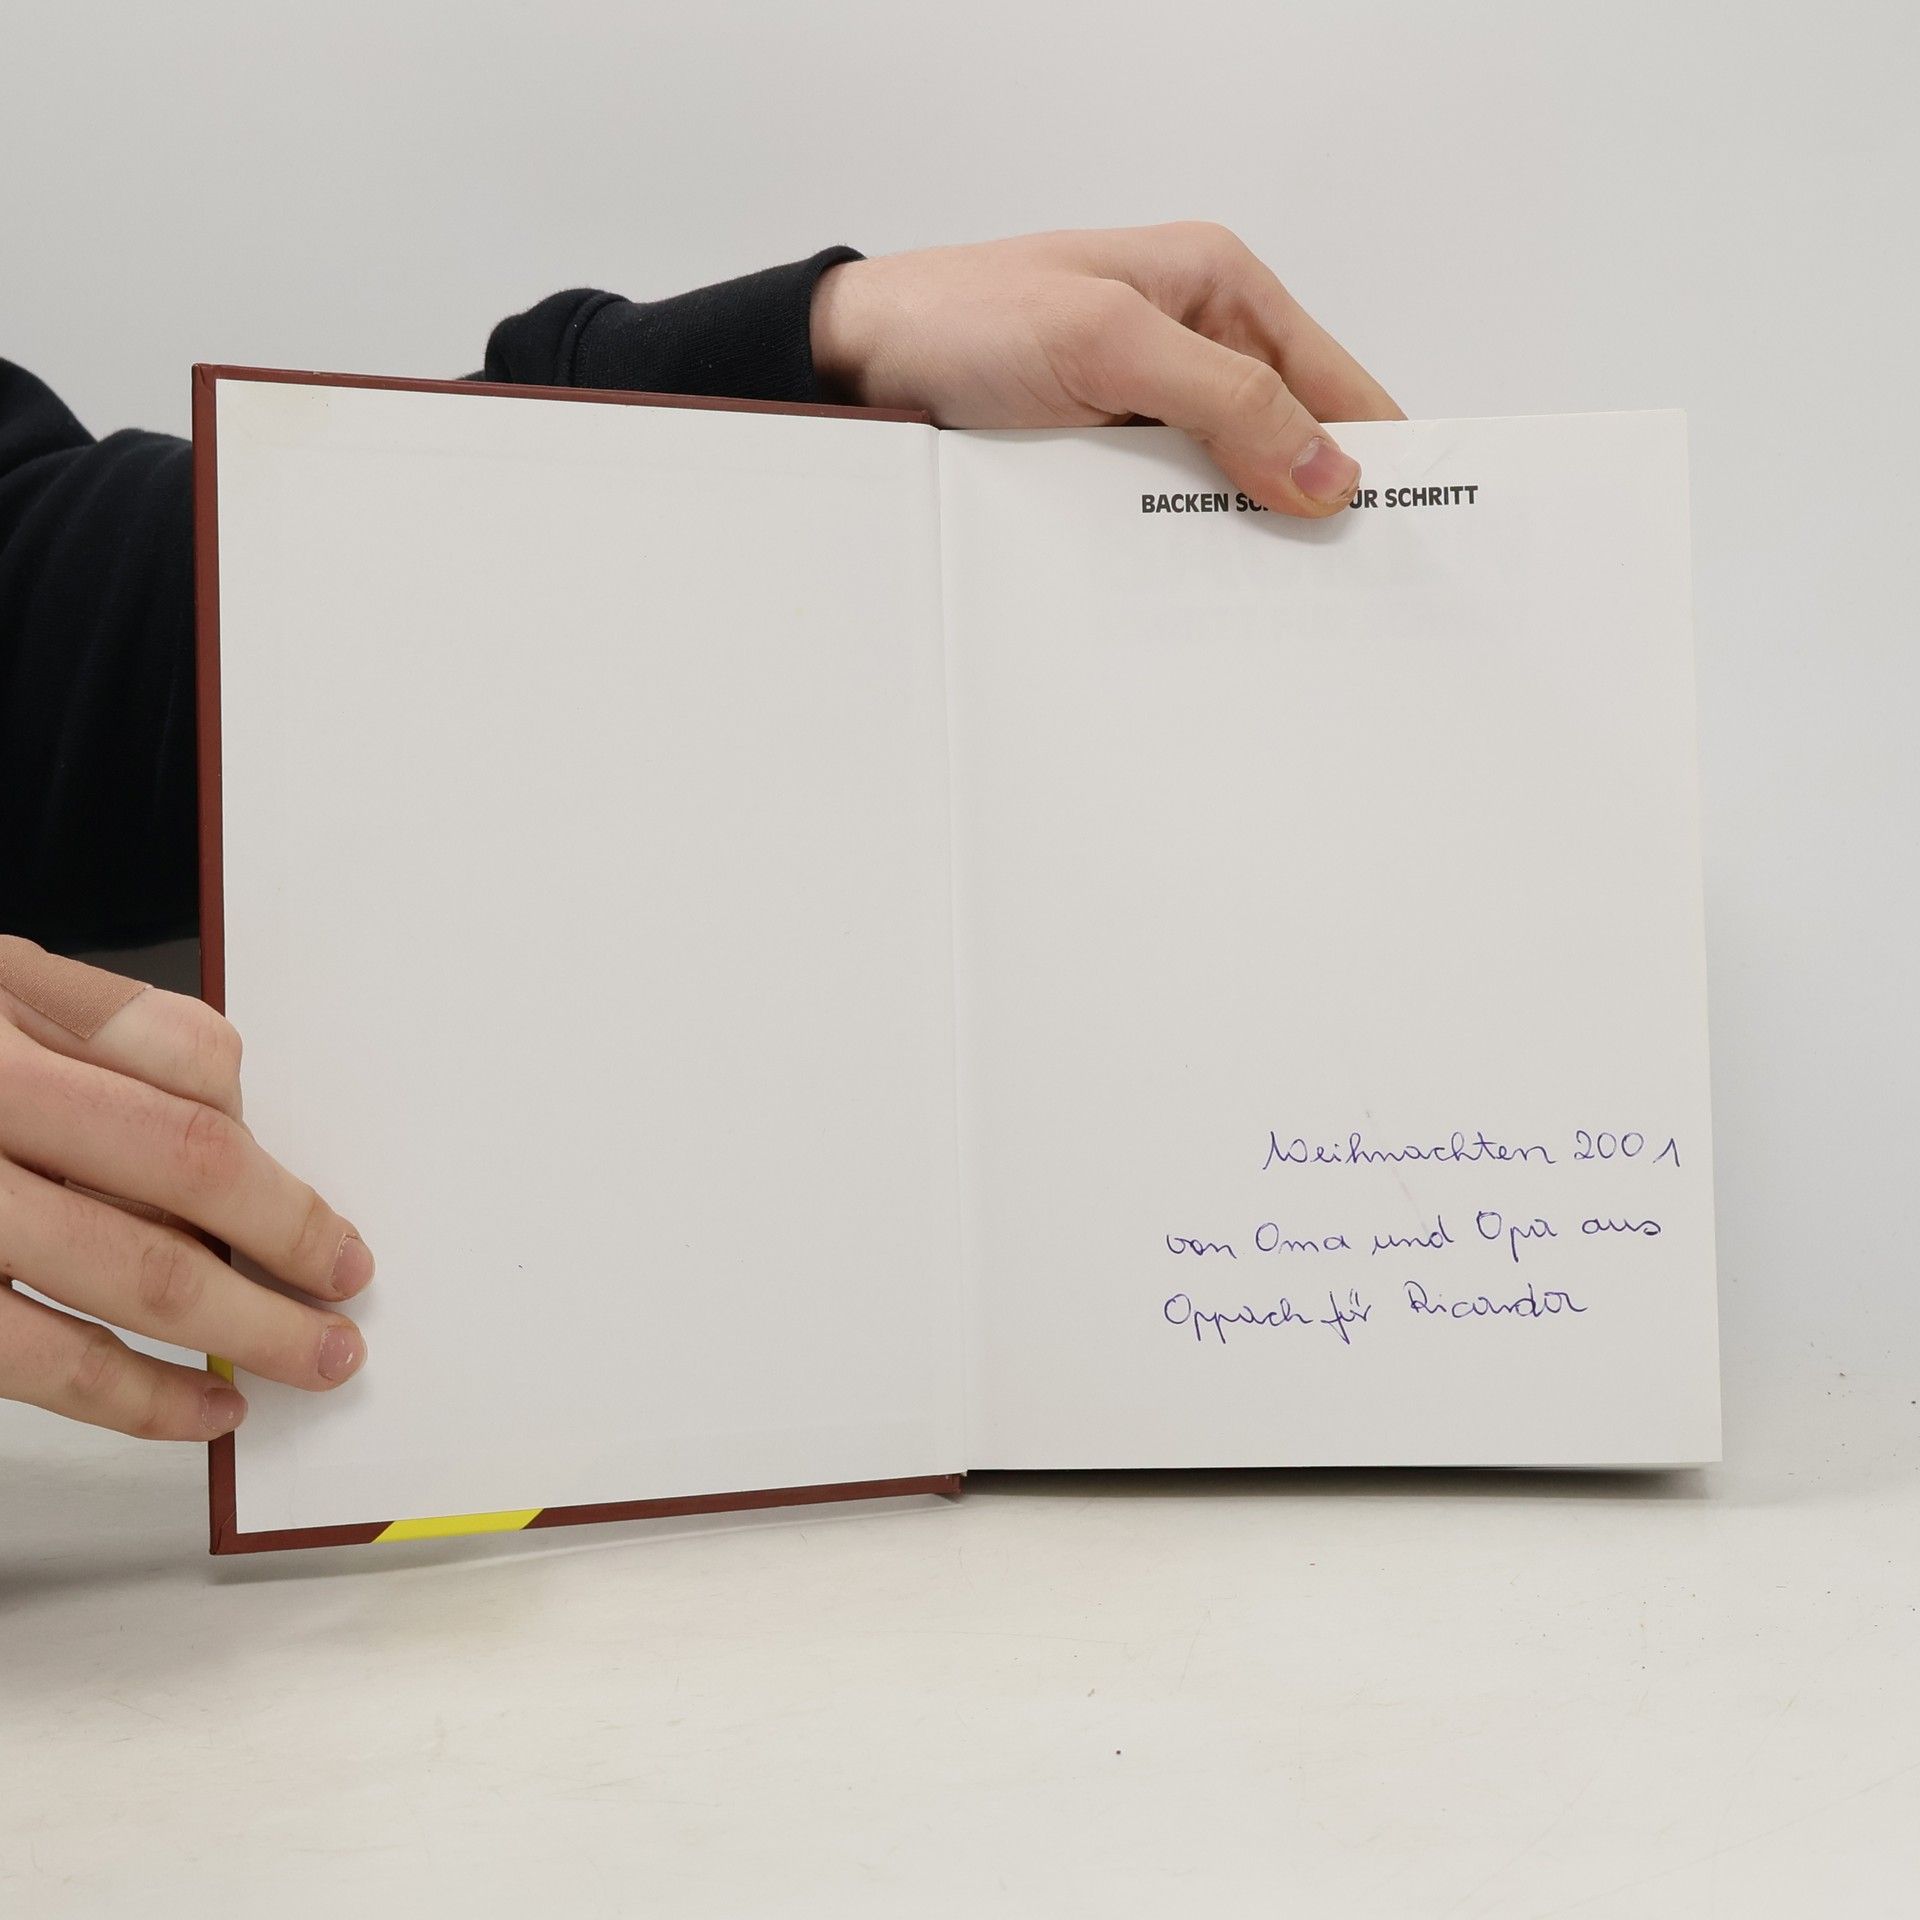 BACKEN SCHRITT FÜR SCHRITT
Weihnachten 2001
von Oma und Opa aus
Oppach für Ricarda